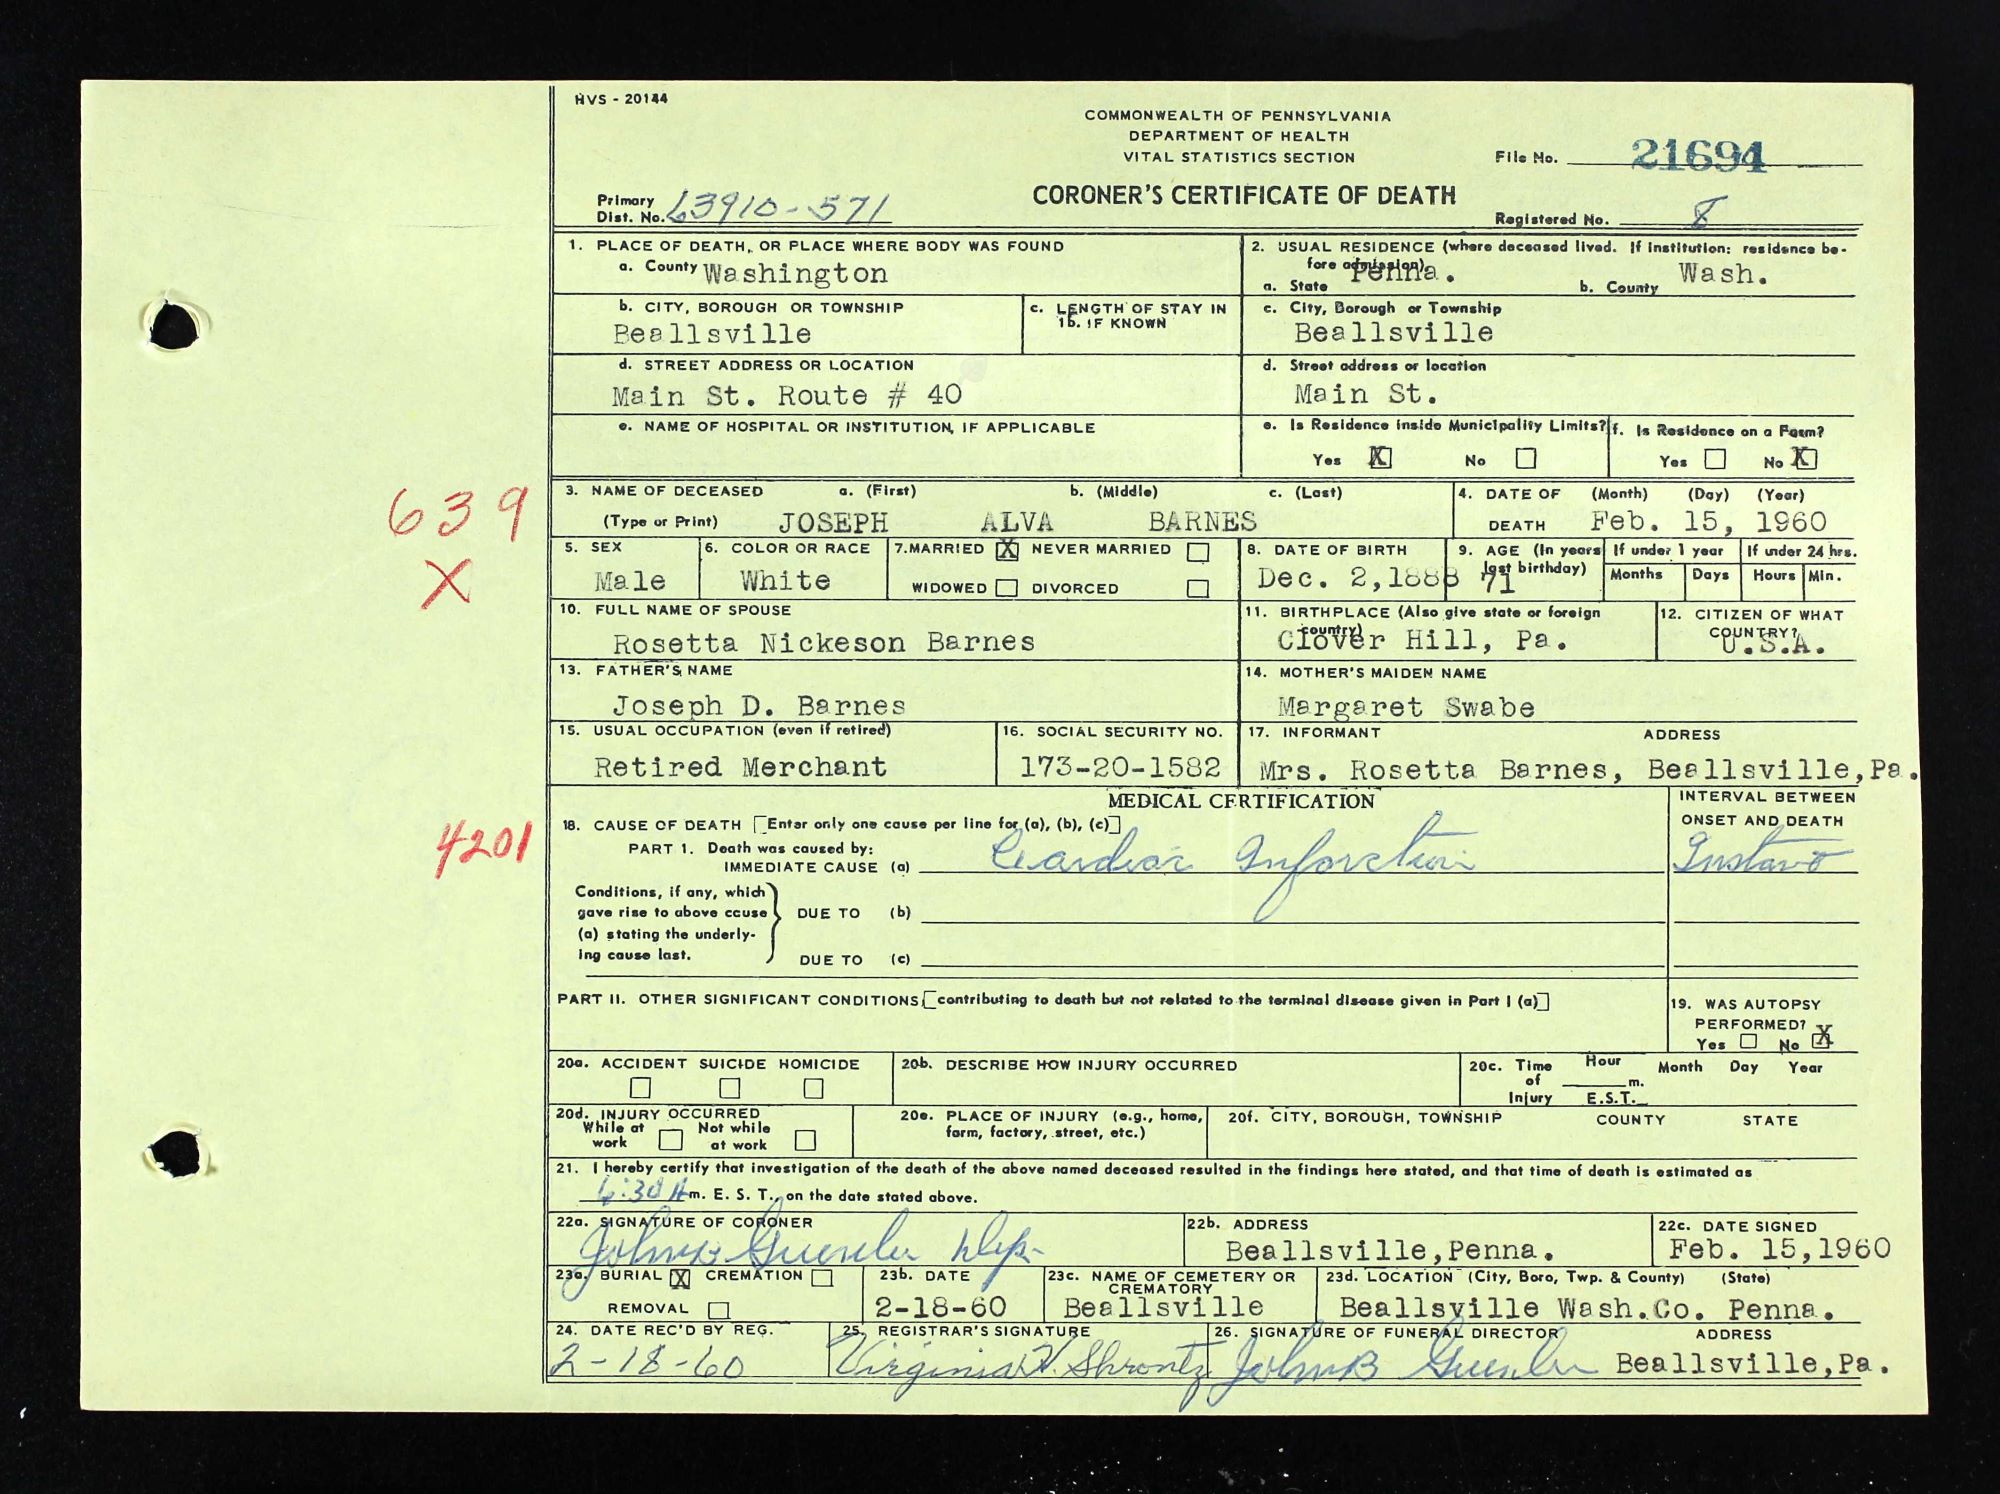 HVS - 20144
COMMONWEALTH OF PENNSYLVANIA
DEPARTMENT OF HEALTH
VITAL STATISTICS SECTION
File No. 21694
CORONER'S CERTIFICATE OF DEATH
Primary
Dist. No. 63910-571
Registered No. 8
1. PLACE OF DEATH, OR PLACE WHERE BODY WAS FOUND
a. County Washington
2. USUAL RESIDENCE (where deceased lived. If institution: residence be-
fore admission)
a. State Penna. b. County Wash.
b. CITY, BOROUGH OR TOWNSHIP
Beallsville
c. LENGTH OF STAY IN
1b. IF KNOWN
c. City, Borough or Township
Beallsville
d. STREET ADDRESS OR LOCATION
Main St. Route # 40
d. Street address or location
Main St.
e. NAME OF HOSPITAL OR INSTITUTION, IF APPLICABLE
e. Is Residence inside Municipality Limits?
Yes X No
f. Is Residence on a Farm?
Yes No X
639
X
3. NAME OF DECEASED a. (First) b. (Middle) c. (Last)
(Type or Print) JOSEPH ALVA BARNES
4. DATE OF (Month) (Day) (Year)
DEATH Feb. 15, 1960
5. SEX
Male
6. COLOR OR RACE
White
7. MARRIED X NEVER MARRIED
WIDOWED DIVORCED
8. DATE OF BIRTH
Dec. 2,1888
9. AGE (In years
last birthday)
71
If under 1 year
Months Days
If under 24 hrs.
Hours Min.
10. FULL NAME OF SPOUSE
Rosetta Nickeson Barnes
11. BIRTHPLACE (Also give state or foreign
country)
Clover Hill, Pa.
12. CITIZEN OF WHAT
COUNTRY?
U.S.A.
13. FATHER'S NAME
Joseph D. Barnes
14. MOTHER'S MAIDEN NAME
Margaret Swabe
15. USUAL OCCUPATION (even if retired)
Retired Merchant
16. SOCIAL SECURITY NO.
173-20-1582
17. INFORMANT ADDRESS
Mrs. Rosetta Barnes, Beallsville,Pa.
MEDICAL CERTIFICATION
INTERVAL BETWEEN
ONSET AND DEATH
4201
18. CAUSE OF DEATH [Enter only one cause per line for (a), (b), (c)]
PART 1. Death was caused by:
IMMEDIATE CAUSE (a) Cardiac Infarction
Conditions, if any, which
gave rise to above cause
(a) stating the underly-
ing cause last.
DUE TO (b)
DUE TO (c)
PART II. OTHER SIGNIFICANT CONDITIONS [contributing to death but not related to the terminal disease given in Part I (a)]
19. WAS AUTOPSY
PERFORMED?
Yes No X
20a. ACCIDENT SUICIDE HOMICIDE
20b. DESCRIBE HOW INJURY OCCURRED
20c. Time
of
Injury
Hour
m.
E.S.T.
Month Day Year
20d. INJURY OCCURRED
While at
work
Not while
at work
20e. PLACE OF INJURY (e.g., home,
farm, factory, street, etc.)
20f. CITY, BOROUGH, TOWNSHIP COUNTY STATE
21. I hereby certify that investigation of the death of the above named deceased resulted in the findings here stated, and that time of death is estimated as
6:30 A m. E. S. T., on the date stated above.
22a. SIGNATURE OF CORONER
John B Dep-
22b. ADDRESS
Beallsville,Penna.
22c. DATE SIGNED
Feb. 15,1960
23a. BURIAL X CREMATION
REMOVAL
23b. DATE
2-18-60
23c. NAME OF CEMETERY OR
CREMATORY
Beallsville
23d. LOCATION (City, Boro, Twp. & County) (State)
Beallsville Wash.Co. Penna.
24. DATE REC'D BY REG.
2-18-60
25. REGISTRAR'S SIGNATURE
Virginia H. Shrontz
26. SIGNATURE OF FUNERAL DIRECTOR ADDRESS
John B Beallsville,Pa.